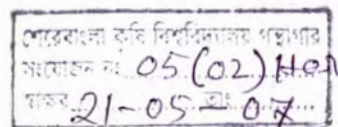 শেরেবাংলা কৃষি বিশ্ববিদ্যালয় গন্থাগার
সংযোজন নং 05(02) Hon
স্বাক্ষর 21-05-07